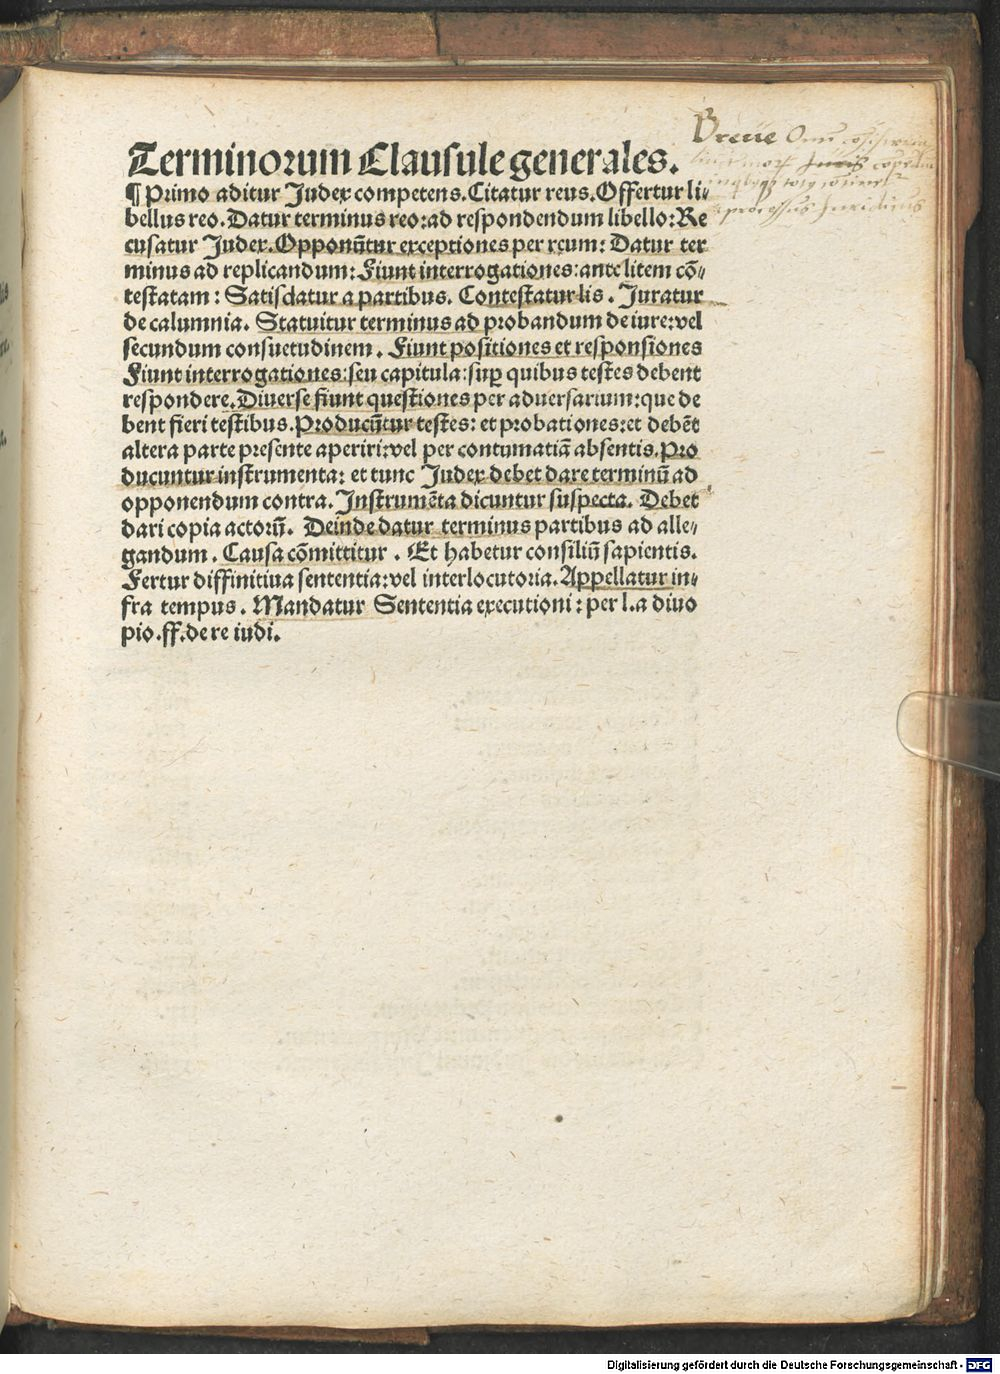 Terminorum Clausule generales.
¶ Primo aditur Judex competens. Citatur reus. Offertur li⸗
bellus reo. Datur terminus reo: ad respondendum libello: Re
cusatur Judex. Opponūtur exceptiones per reum: Datur ter
minus ad replicandum: Fiunt interrogationes: ante litem cō⸗
testatam: Satisdatur a partibus. Contestatur lis. Juratur
de calumnia. Statuitur terminus ad probandum de iure: vel
secundum consuetudinem. Fiunt positiones et responsiones
Fiunt interrogationes: seu capitula: suꝑ quibus testes debent
respondere. Diuerse fiunt questiones per aduersarium: que de
bent fieri testibus. Producūtur testes: et probationes: et debēt
altera parte presente aperiri: vel per contumatiā absentis. Pro
ducuntur instrumenta: et tunc Judex debet dare terminū ad
opponendum contra. Instrumēta dicuntur suspecta. Debet
dari copia actorū. Deinde datur terminus partibus ad alle⸗
gandum. Causa cōmittitur. Et habetur consiliū sapientis.
Fertur diffinitiua sententia: vel interlocutoria. Appellatur in⸗
fra tempus. Mandatur Sententia executioni: per l. a diuo
pio. ff. de re iudi.
Breue
processus Juridicus
Digitalisierung gefördert durch die Deutsche Forschungsgemeinschaft - DFG